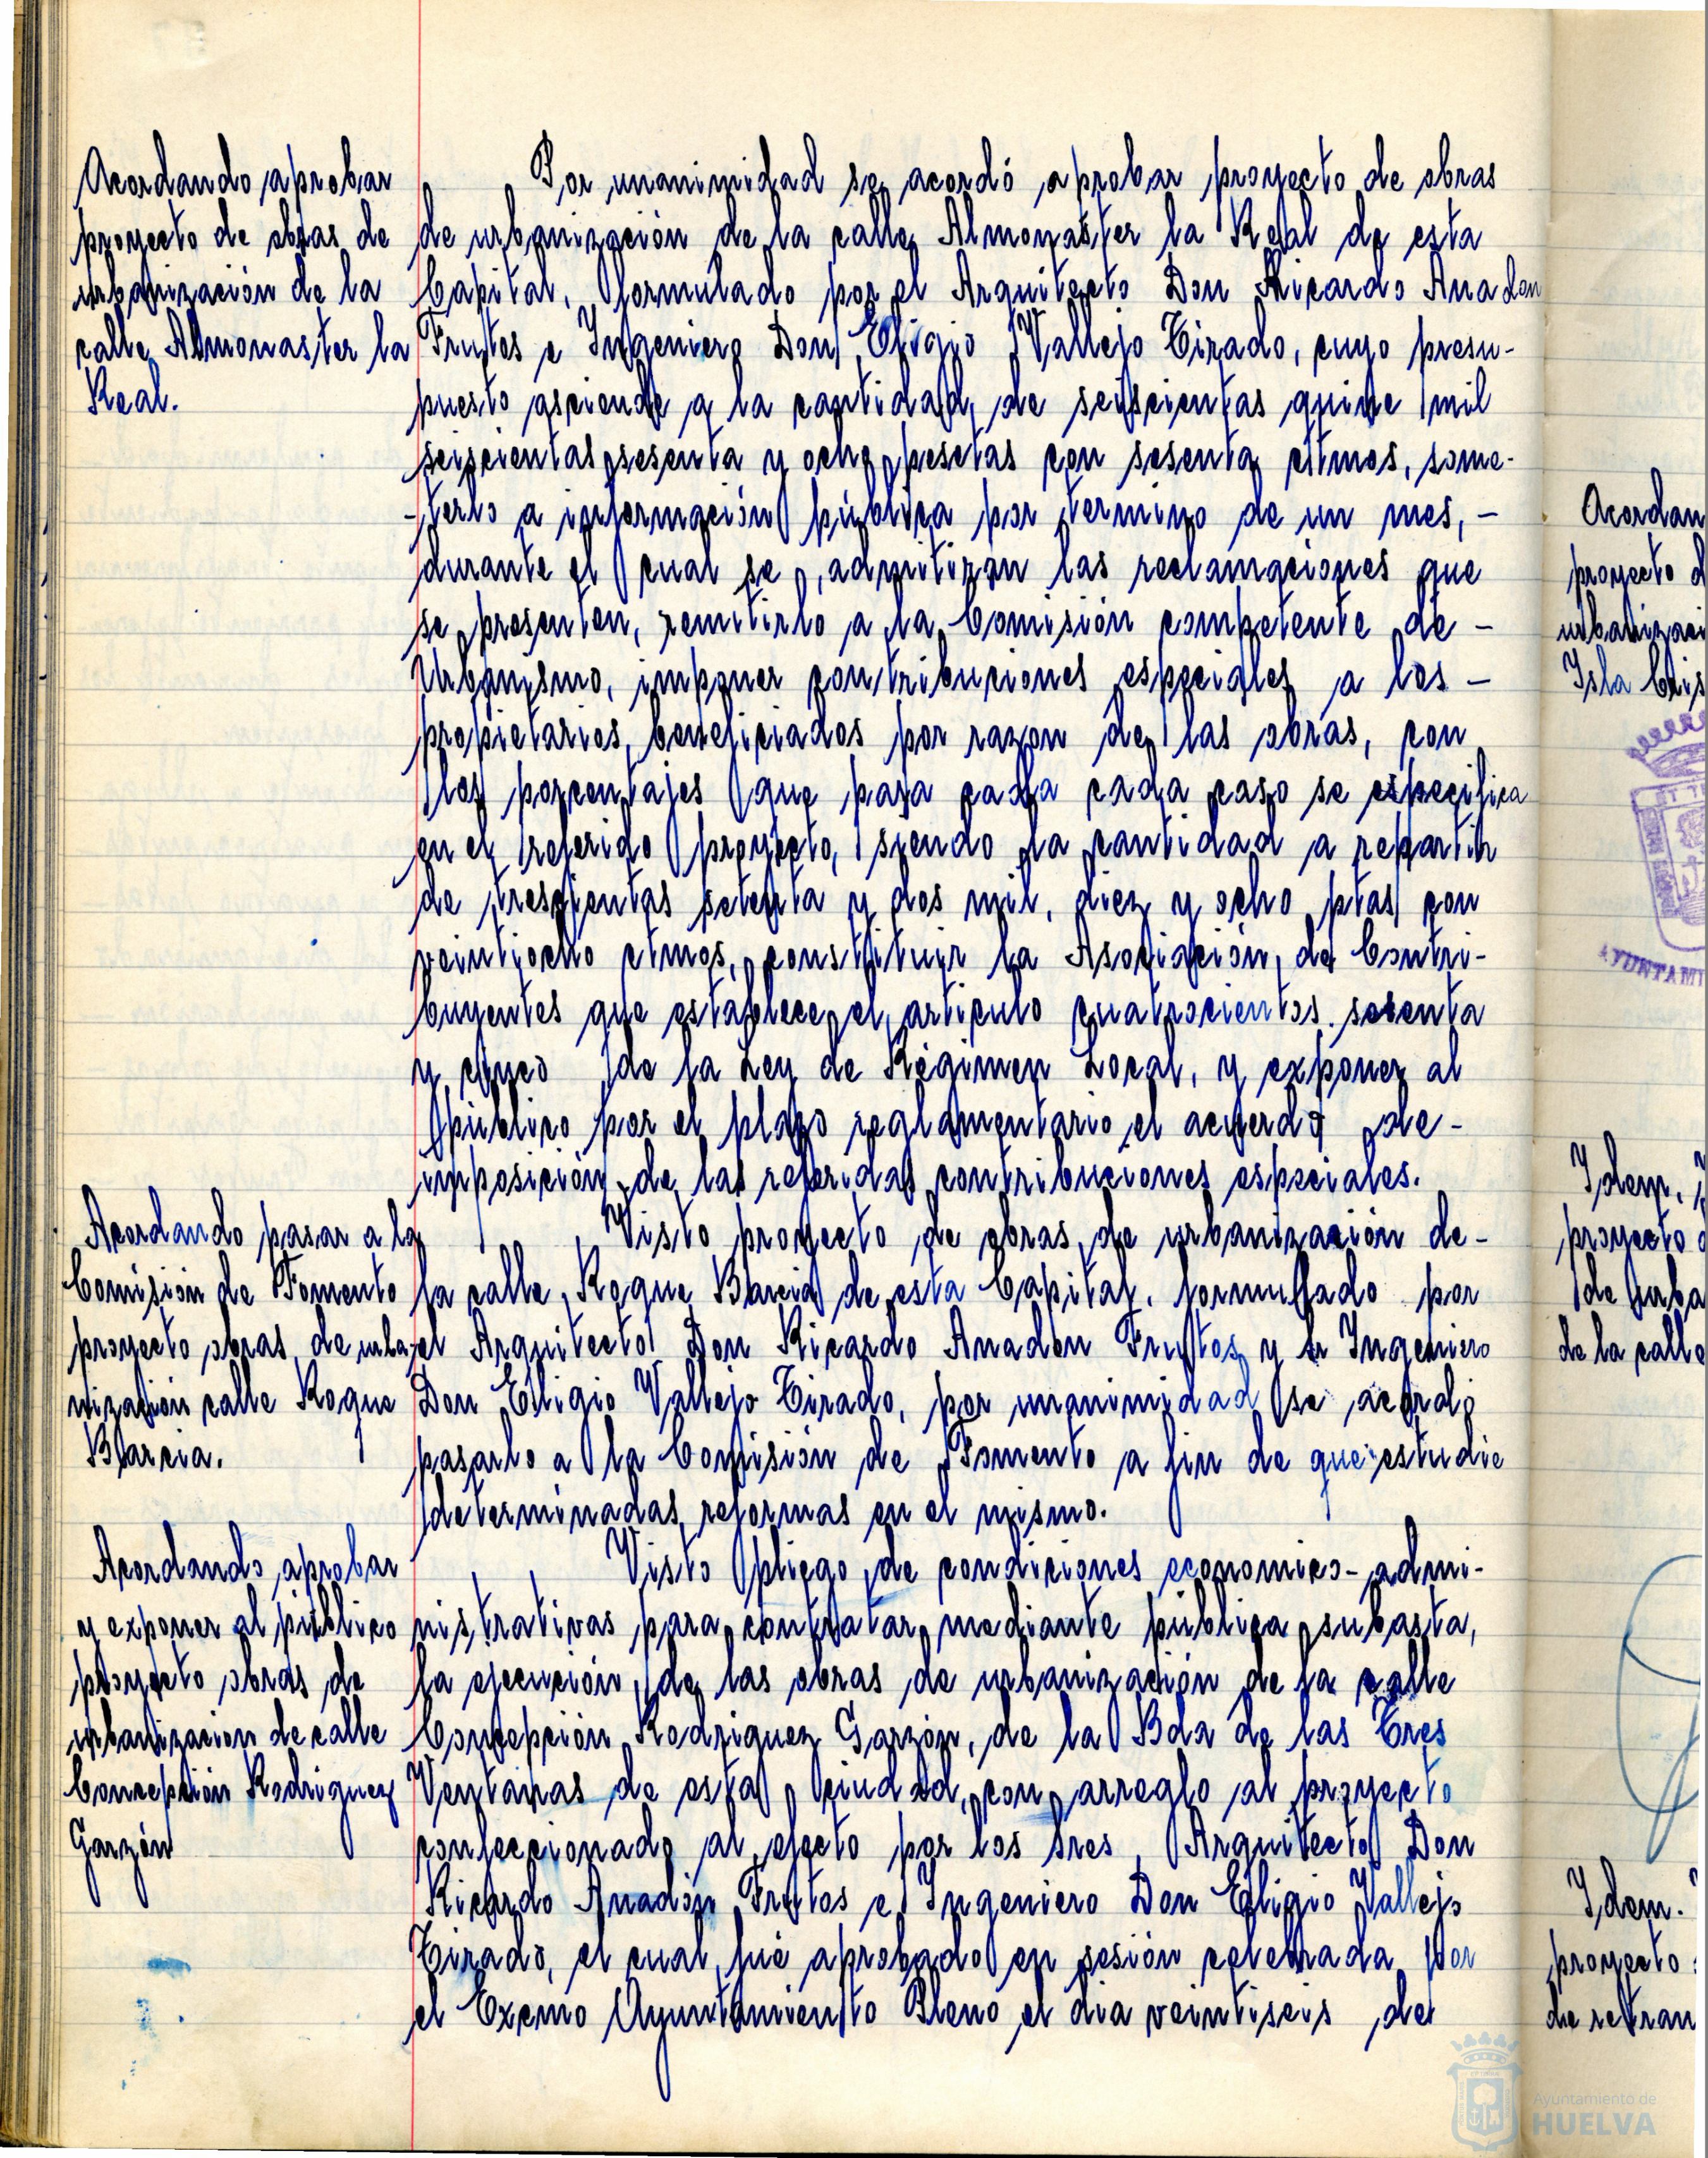 Acordando aprobar
proyecto de obras de
urbanización de la
calle Almonaster la
Real.
Por unanimidad se acordó aprobar proyecto de obras
de urbanización de la calle Almonaster la Real de esta
Capital, formulado por el Arquitecto Don Ricardo Anadon
Frutos e Ingeniero Don Eligio Vallejo Tirado, cuyo presu-
puesto asciende a la cantidad de seiscientas quince mil
seiscientas sesenta y ocho pesetas con sesenta ctmos, some-
-terlo a información pública por termino de un mes, -
durante el cual se admitirán las reclamaciones que
se presenten, remitirlo a la Comisión competente de -
Urbanismo, imponer contribuciones especiales a los -
propietarios beneficiados por razon de las obras, con
los porcentajes que para cada cada caso se especifica
en el referido proyecto, siendo la cantidad a repartir
de trescientas setenta y dos mil, diez y ocho ptas con
veintiocho ctmos, constituir la Asociación de Contri-
buyentes que establece el articulo cuatrocientos sesenta
y cinco de la Ley de Régimen Local, y exponer al
público por el plazo reglamentario el acuerdo de -
imposición de las referidas contribuciones especiales.
Acordando pasar a la
Comisión de Fomento
proyecto obras de urba-
nización calle Roque
Barcia.
Visto proyecto de obras de urbanización de -
la calle Roque Barcia de esta Capital, formulado por
el Arquitecto Don Ricardo Anadón Frutos y el Ingeniero
Don Eligio Vallejo Tirado, por unanimidad se acordó
pasarlo a la Comisión de Fomento a fin de que estudie
determinadas reformas en el mismo.
Acordando aprobar
y exponer al público
proyecto obras de
urbanizacion de calle
Concepción Rodriguez
Garzón
Visto pliego de condiciones economico-admi-
nistrativas para contratar mediante pública subasta,
la ejecución de las obras de urbanización de la calle
Concepción Rodriguez Garzón, de la Bda de las Tres
Ventanas de esta ciudad, con arreglo al proyecto
confeccionado al efecto por los Sres Arquitecto Don
Ricardo Anadón Frutos e Ingeniero Don Eligio Vallejo
Tirado, el cual fué aprobado en sesión celebrada por
el Excmo Ayuntamiento Pleno el dia veintiseis de
Acordan
proyecto d
urbanizaci
Isla Cris
AYUNTAMI
Idem.
proyecto
de urba
de la calle
Idem.
proyecto
de
Ayuntamiento de
HUELVA